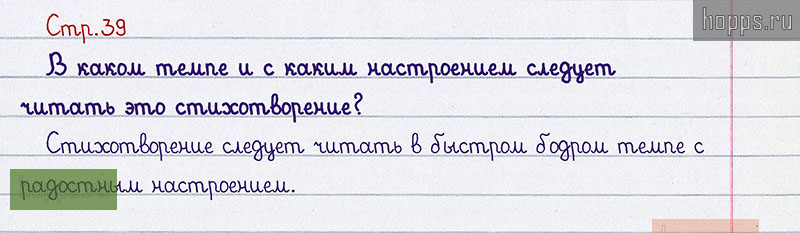 hopps.ru
Стр.39
В каком темпе и с каким настроением следует
читать это стихотворение?
Стихотворение следует читать в быстром бодром темпе с
радостным настроением.